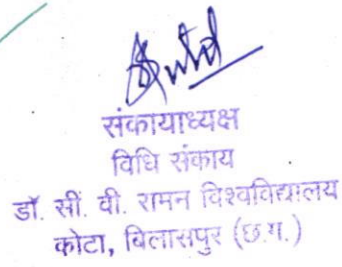 संकायाध्यक्ष
विधि संकाय
डॉ. सीं. वी. रामन विश्वविद्यालय
कोटा, बिलासपुर (छ.ग.)